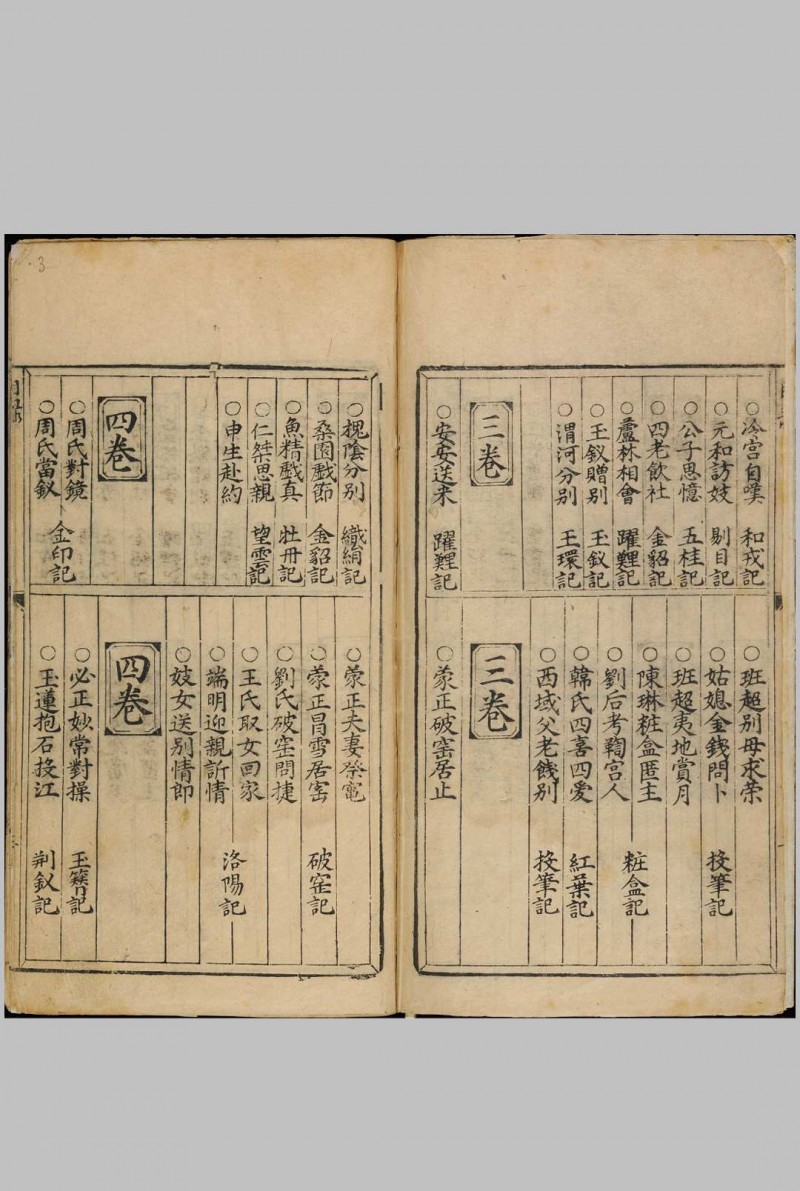 冷宫自嘆 和戎記
元和訪妓 剔目記
公子思憶 五桂記
四老飲社 金貂記
蘆林相會 躍鯉記
玉釵贈別 玉釵記
渭河分別 玉環記
三卷
安安送米 躍鯉記
班超別母求荣
姑媳金錢問卜 投筆記
班超夷地賞月
陳琳粧盒匿主
劉后考鞫宫人 粧盒記
韓氏四喜四愛 紅葉記
西域父老餞別 投筆記
三卷
蒙正破窑居止
槐陰分別 織絹記
桑園戲節 金貂記
魚精戲真 牡丹記
仁桀思親 望雲記
申生赴約
四卷
周氏對鏡
周氏當釵 金印記
蒙正夫妻祭竈
蒙正冒雪居窑 破窑記
劉氏破窑問捷
王氏取女回家
端明迎親訴情 洛陽記
妓女送別情郎
四卷
必正妙常對操 玉簪記
玉蓮抱石投江 荆釵記
3